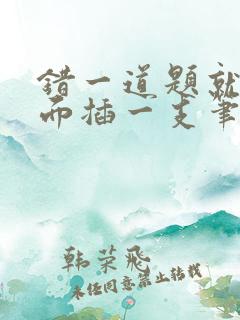 错一道题就
而插一支笔
韩荣飛
未经同意禁止转载